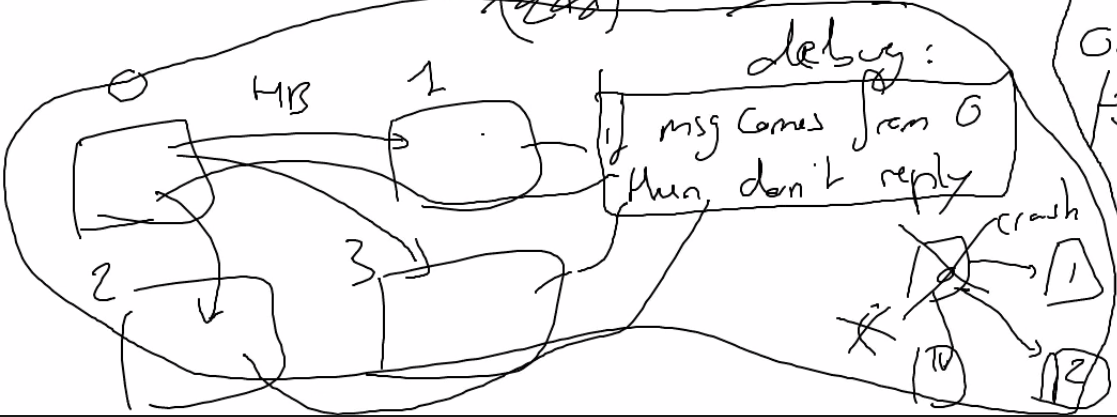 debug:
0
HB
1
if msg comes from 0
then don't reply
crash
2
3
1
2